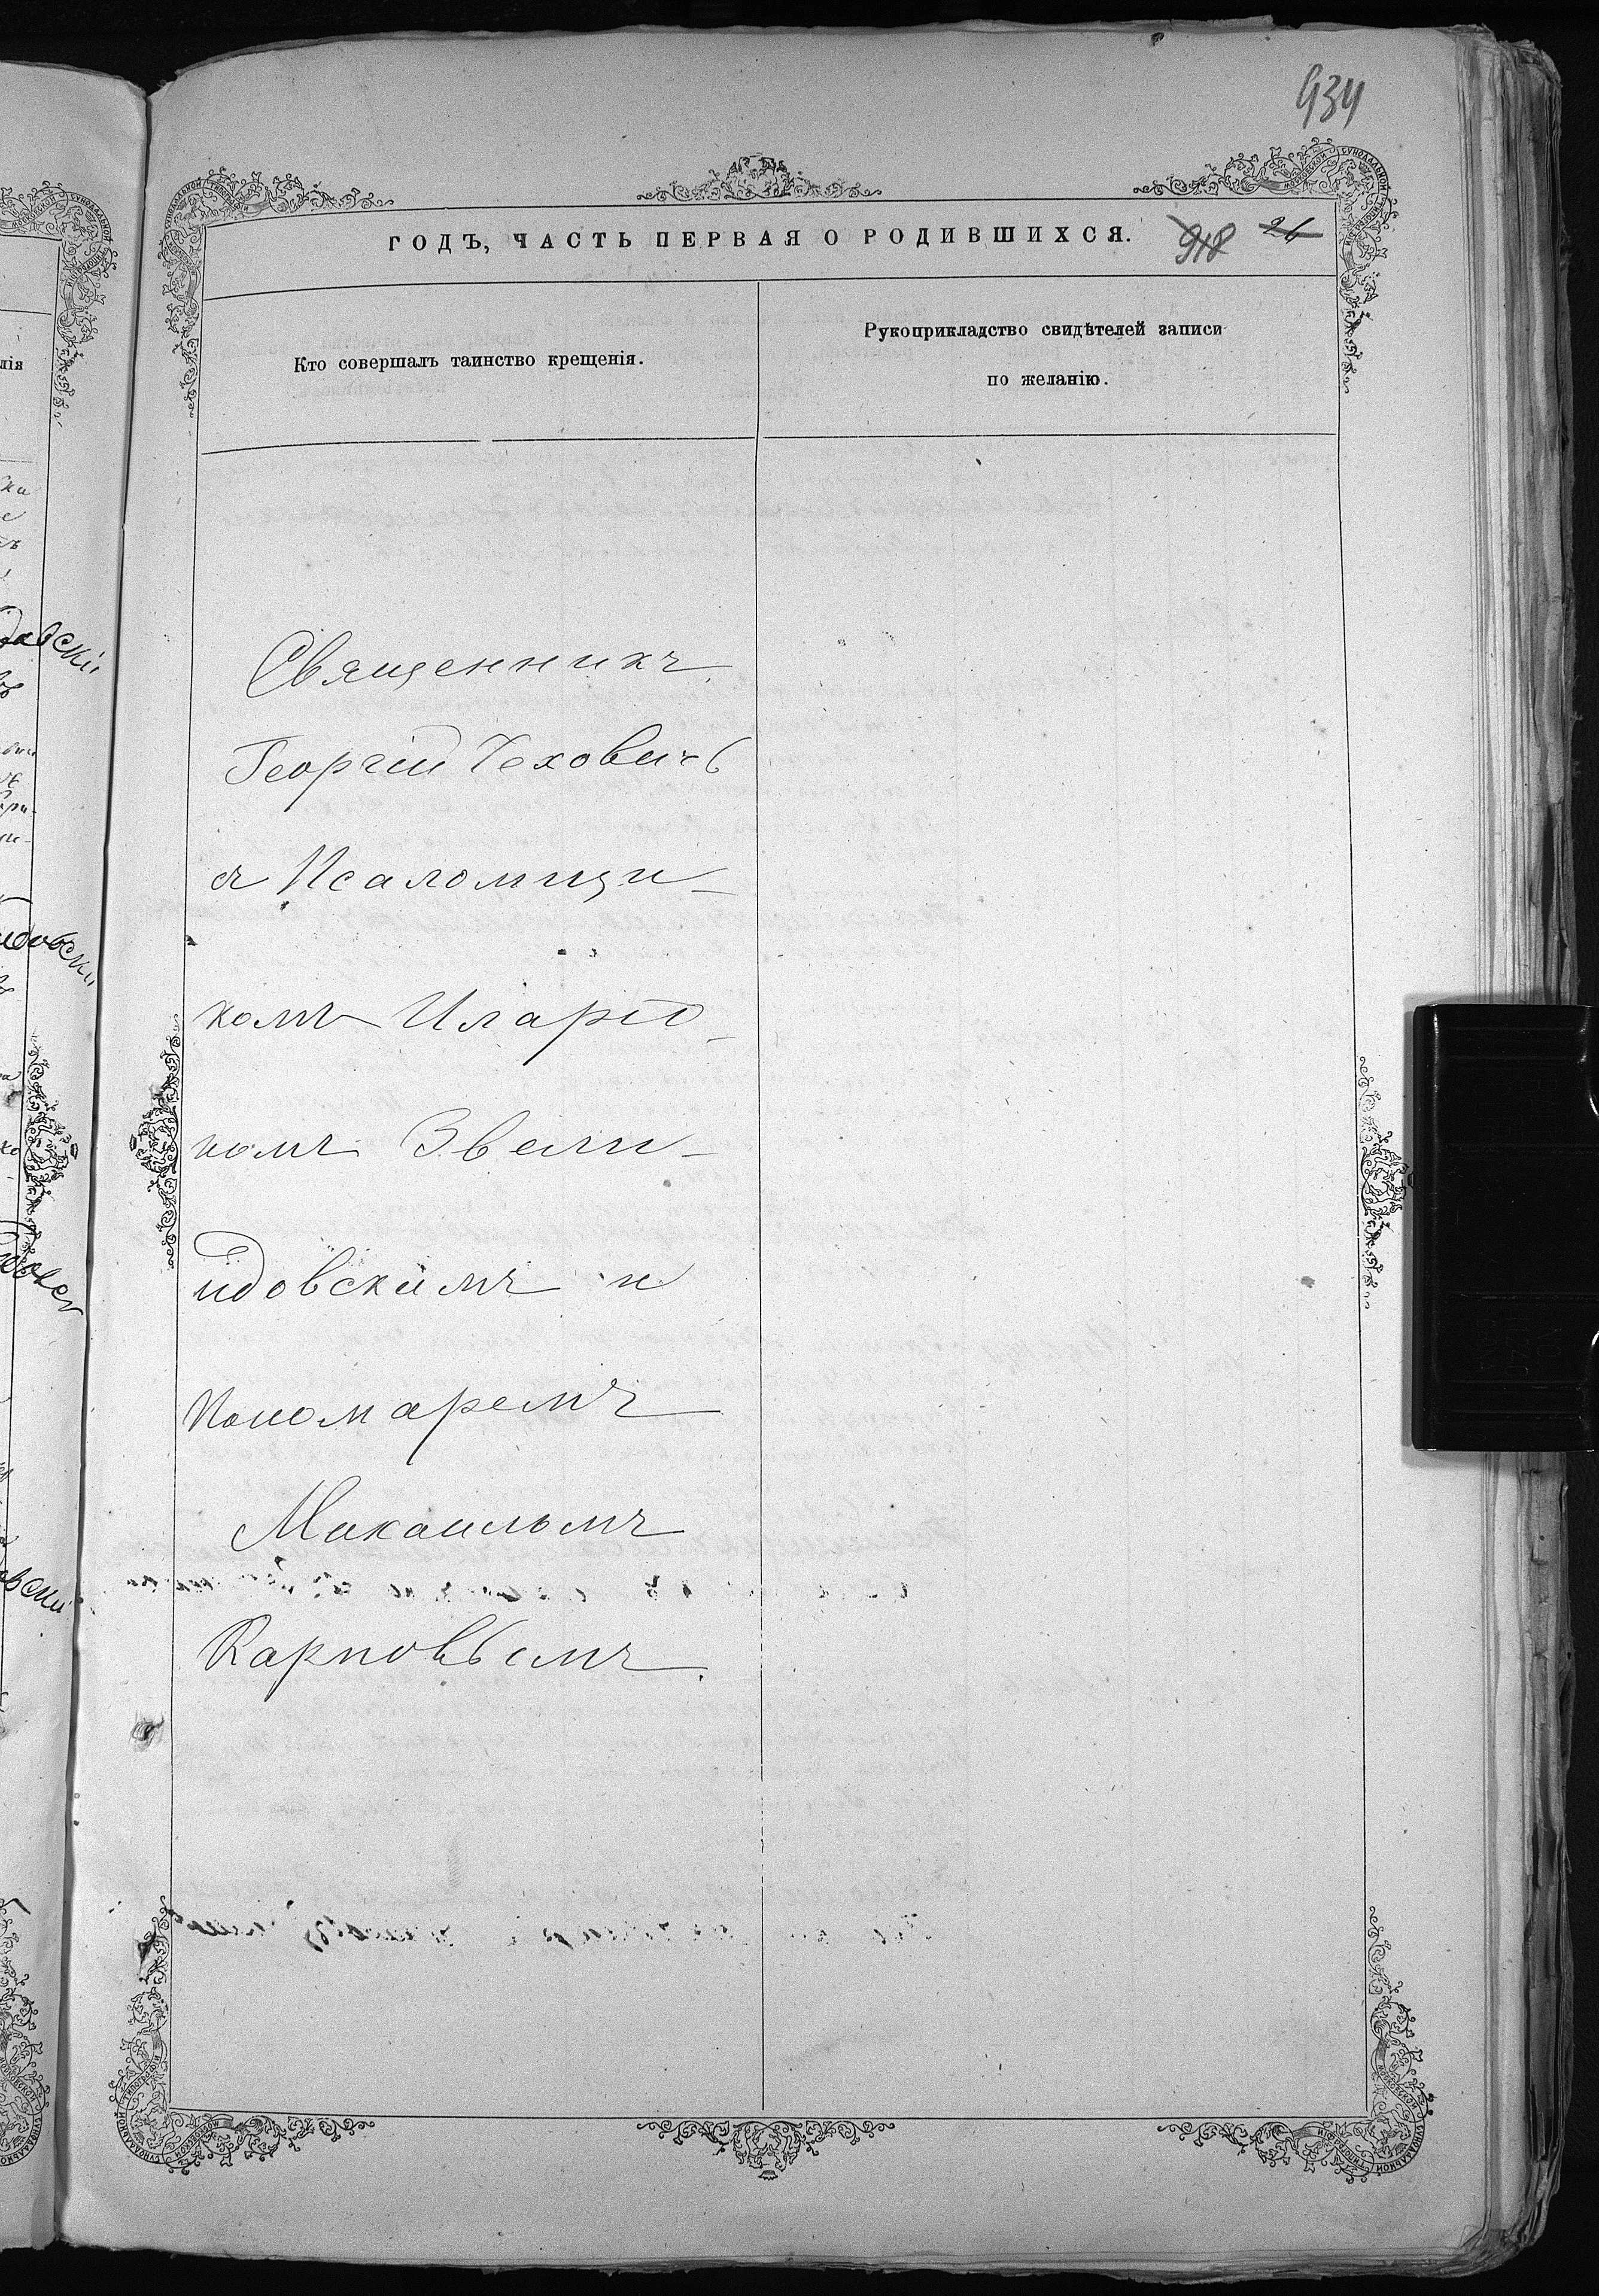 934
ГОДЪ, ЧАСТЬ ПЕРВАЯ О РОДИВШИХСЯ. 918 26
Кто совершалъ таинство крещенія.
Рукоприкладство свидѣтелей записи
по желанію.
Священникъ
Георгій Чеховичъ
съ Псаломщи-
комъ Иларіо-
номъ Звени-
идовскимъ и
Пономаремъ
Михаиломъ
Карповымъ.